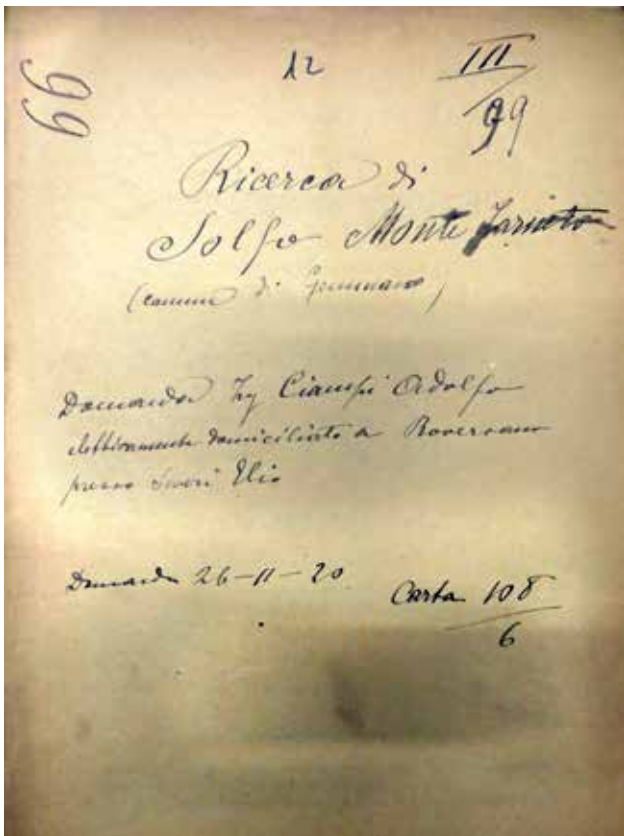 99
12
III
99
Ricerca di
Solfo Monte
(comune di Gemmano)
Domanda Ing Ciampi Adolfo
elettivamente domiciliato a Roversano
presso Severi Elio
Domanda 26-11-20
Carta 108
6